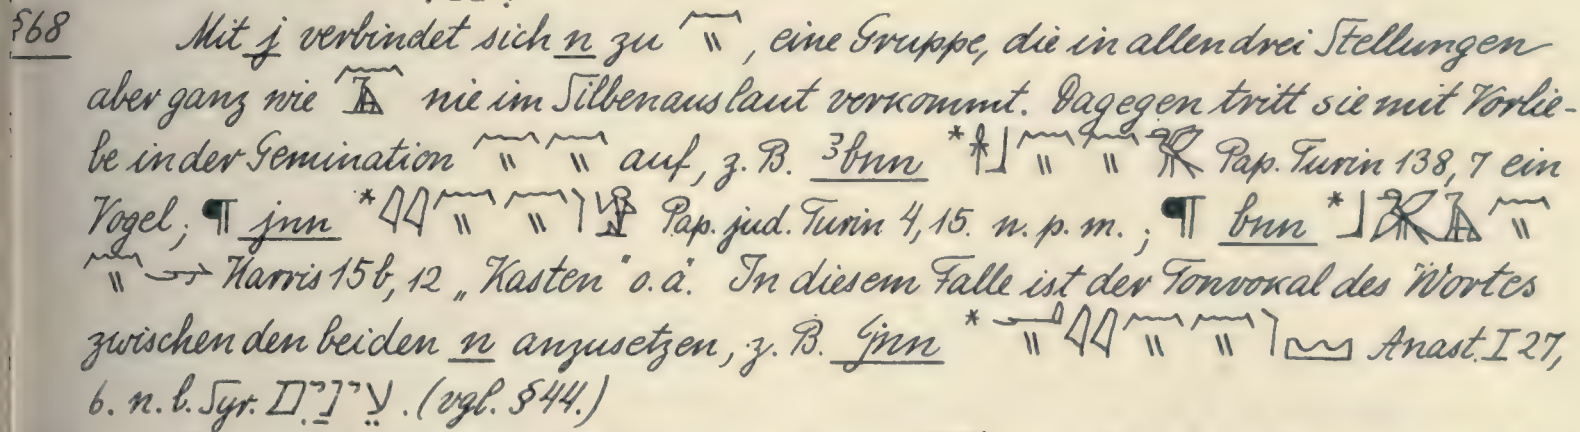 §68 Mit j verbindet sich n zu 𓈖𓏭, eine Gruppe, die in allen drei Stellungen
aber ganz wie nie im Silbenauslaut vorkommt. Dagegen tritt sie mit Vorlie-
be in der Gemination 𓈖𓏭𓈖𓏭 auf, z. B. ꜣbnn * Pap. Turin 138, 7 ein
Vogel; ¶ jnn * 𓇋𓇋𓈖𓏭𓈖𓏭 Pap. jud. Turin 4, 15. n. p. m. ; ¶ bnn *
𓈖𓏭 Harris 15b, 12 „Kasten" o. ä. In diesem Falle ist der Tonvokal des Wortes
zwischen den beiden n anzusetzen, z. B. ꜥjnn * 𓂝𓏭𓇋𓇋𓈖𓏭𓈖𓏭𓈉 Anast. I 27,
6. n. l. Syr. עֵינַיִם. (vgl. §44.)